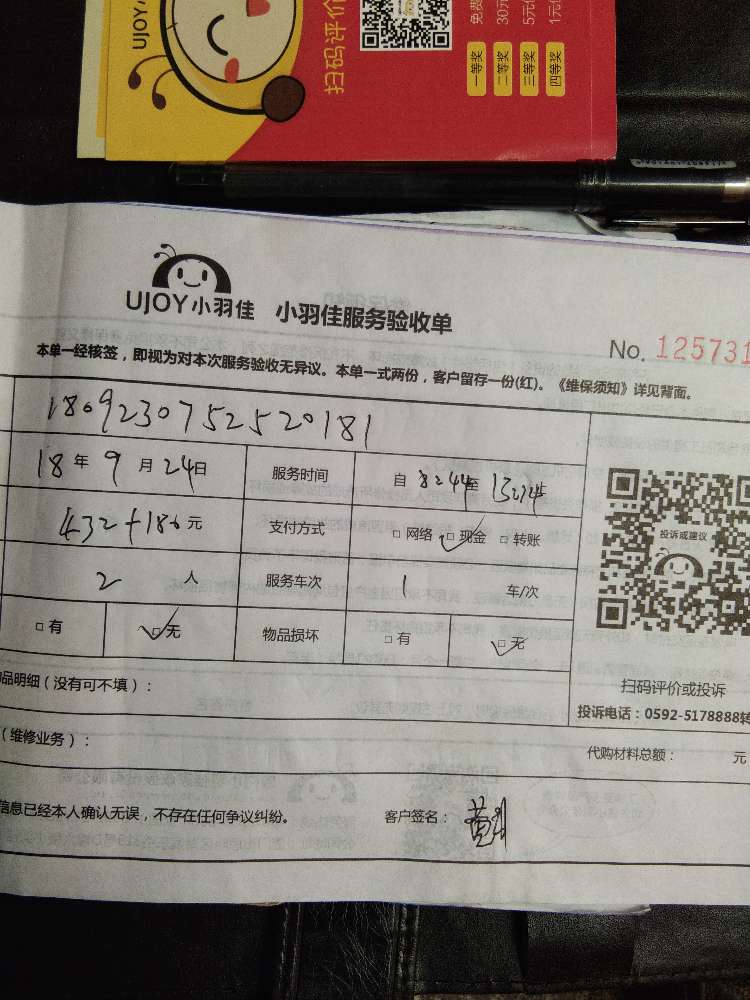 UJOY
扫码评价
免费
30元
5元
1元
一等奖
二等奖
三等奖
四等奖
UJOY小羽佳 小羽佳服务验收单
No. 125731
本单一经核签，即视为对本次服务验收无异议。本单一式两份，客户留存一份(红)。《维保须知》详见背面。
1809230752520181
18年9月24日 服务时间 自8:44至
432+186元 支付方式 □网络 ☑现金 □转账
投诉或建议
2人 服务车次 1 车/次
□有 ☑无 物品损坏 □有 ☑无
扫码评价或投诉
品明细（没有可不填）：
投诉电话：0592-5178888转
（维修业务）：
代购材料总额： 元
信息已经本人确认无误，不存在任何争议纠纷。 客户签名：